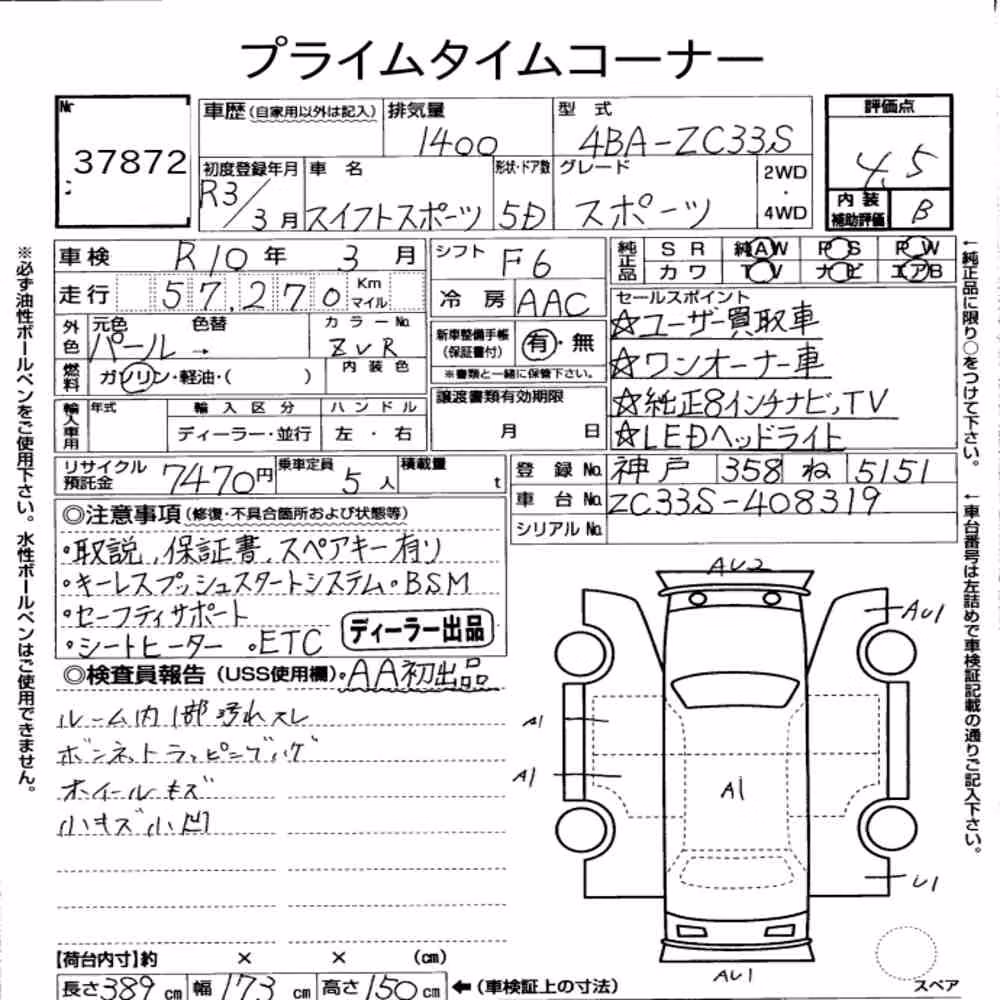 プライムタイムコーナー
Nr
37872
車歴(自家用以外は記入)
排気量
1400
型 式
4BA-ZC33S
評価点
4.5
初度登録年月
R3/3月
車 名
スイフトスポーツ
形状・ドア数
5D
グレード
スポーツ
2WD
・
4WD
内 装
補助評価
B
車検 R10年 3月
シフト F6
走行 57,270 Km
マイル
冷 房 AAC
純正品
S R 純AW P S P W
カ ワ T V ナ ビ エアB
外色
元色 色替
パール →
カラーNo.
ZVR
新車整備手帳
(保証書付)
有・無
※書類と一緒に保管下さい。
セールスポイント
☆ユーザー買取車
☆ワンオーナー車
☆純正8インチナビ,TV
☆LEDヘッドライト
燃料
ガソリン・軽油・( )
内 装 色
輸入車用
年式
輸 入 区 分
ディーラー・並行
ハ ン ド ル
左 ・ 右
譲渡書類有効期限
月 日
リサイクル
預託金
7470円
乗車定員
5人
積載量
t
登 録 No. 神戸 358 ね 5151
車 台 No. ZC33S-408319
シリアルNo.
◎注意事項(修復・不具合箇所および状態等)
・取説,保証書,スペアキー有り
・キーレスプッシュスタートシステム・BSM
・セーフティサポート
・シートヒーター ・ETC
ディーラー出品
◎検査員報告(USS使用欄)・AA初出品
ルーム内1部汚れスレ
ボンネットラッピング
ホイールキズ
小キズ小凹
AU2
AU1
A1
A1
A1
U1
AU1
スペア
【荷台内寸】約 × × (cm)
長さ389cm 幅173cm 高さ150cm ←(車検証上の寸法)
※必ず油性ボールペンをご使用下さい。水性ボールペンはご使用できません。
←純正品に限り○をつけて下さい。
←車台番号は左詰めで車検証記載の通りご記入下さい。